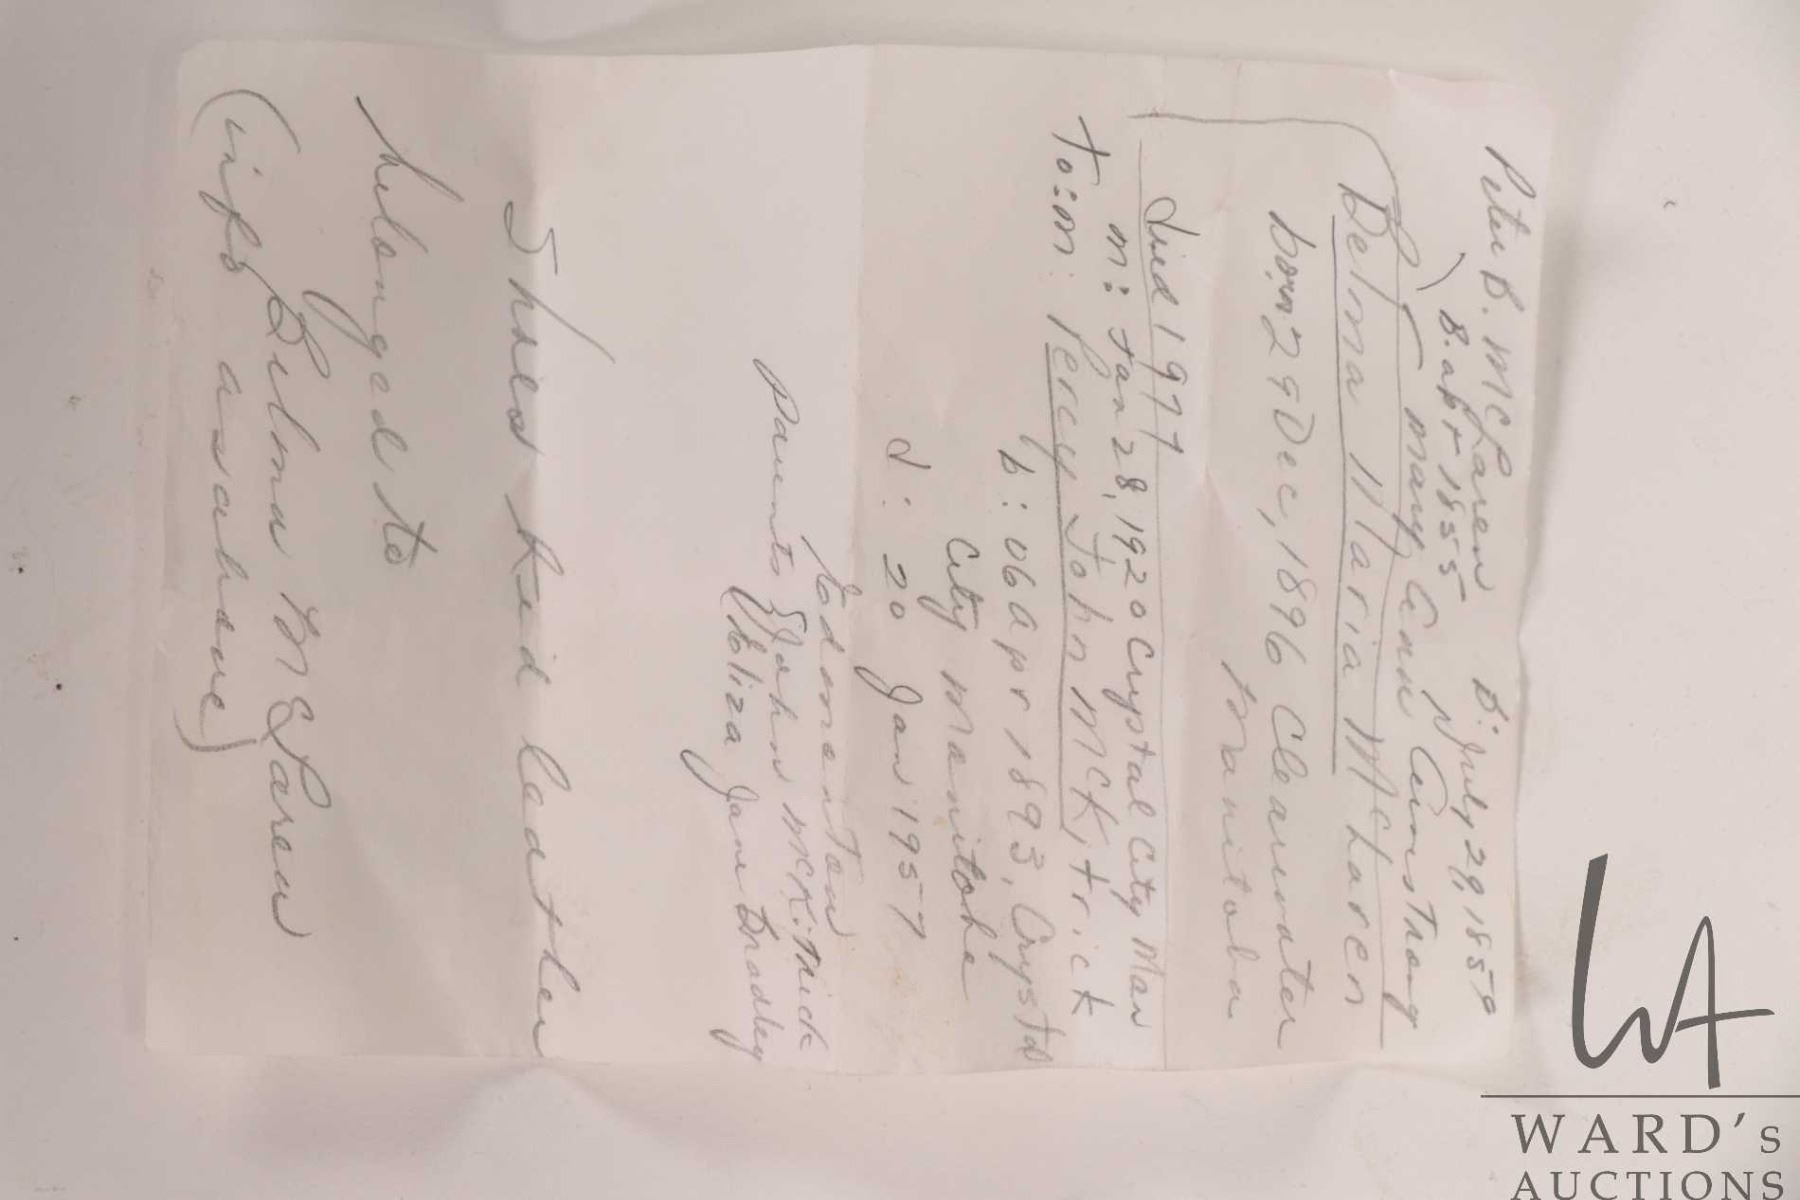 Peter B. McLaren B. July 29, 1859
B. apr 1855
mary Ann Armstrong
Delma Maria McLaren
born 29 Dec, 1896 Clearwater
Manitoba
died 1977
m: Jan 28, 1920 Crystal City Man
To: m: Percy John McKitrick
b: 06 apr 1893, Crystal
City Manitoba
d: 20 Jan 1957
Edmonton
Parents John McKitrick
Eliza Jane Bradley
Shoes kid leather
belonged to
Delma McLaren
(info as above)
WARD's
AUCTIONS